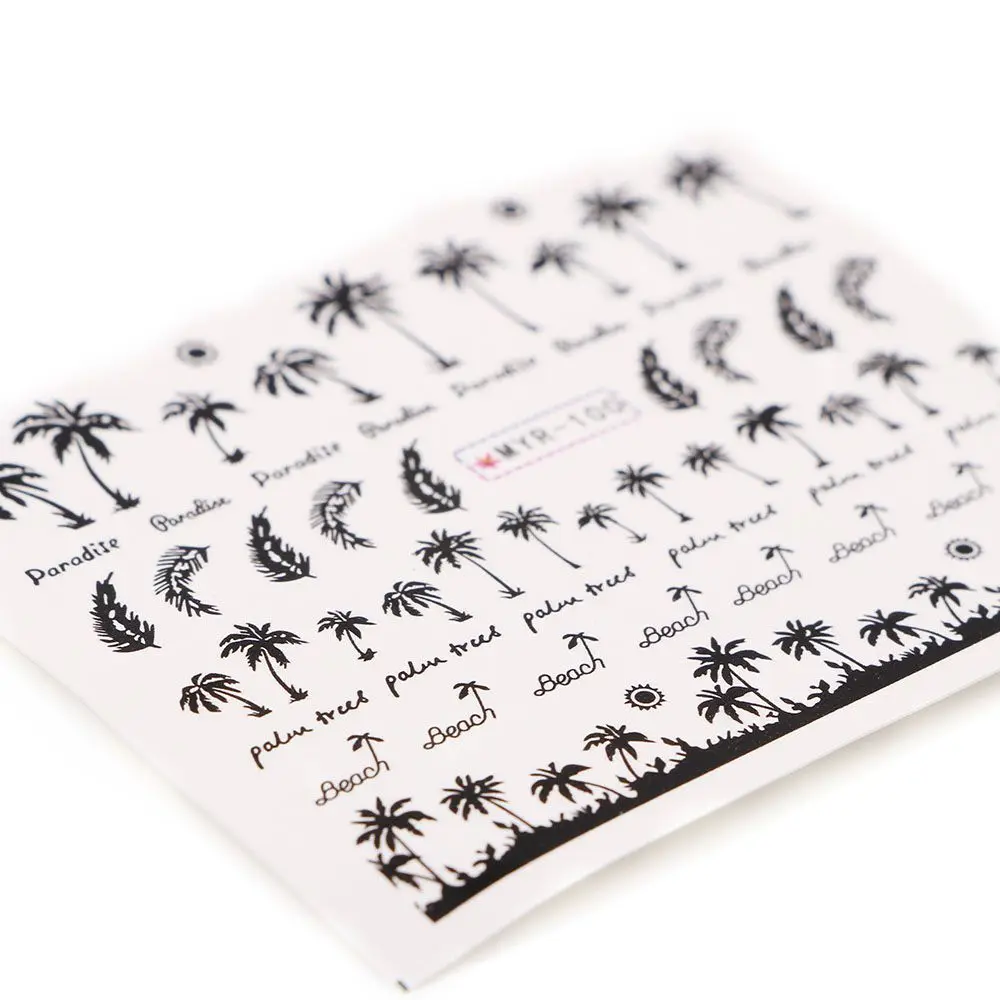 Paradise Paradise Paradise Paradise Paradise Paradise Paradise Paradise
MYR-100
palm trees palm trees palm trees palm trees palm trees palm
Beach Beach Beach Beach Beach Beach Beach